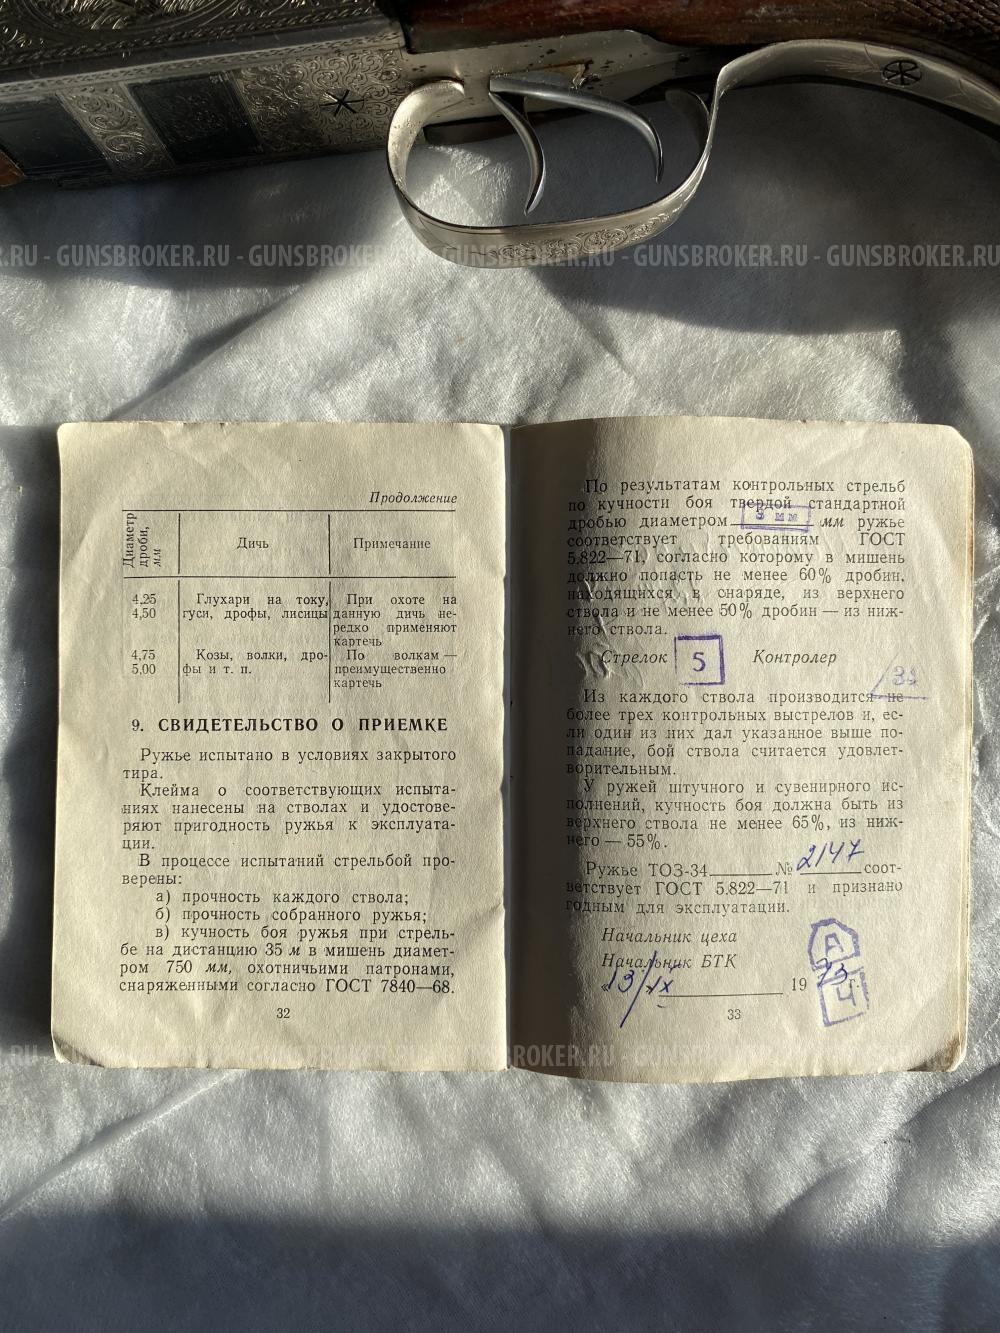 GUNSBROKER.RU - GUNSBROKER.RU - GUNSBROKER.RU - GUNSBROKER.RU - GUNSBROKER.RU
Продолжение
Диаметр дроби, мм
Дичь
Примечание
4,25
4,50
Глухари на току,
гуси, дрофы, лисицы
При охоте на
данную дичь не-
редко применяют
картечь
4,75
5,00
Козы, волки, дро-
фы и т. п.
По волкам —
преимущественно
картечь
9. СВИДЕТЕЛЬСТВО О ПРИЕМКЕ
Ружье испытано в условиях закрытого
тира.
Клейма о соответствующих испыта-
ниях нанесены на стволах и удостове-
ряют пригодность ружья к эксплуата-
ции.
В процессе испытаний стрельбой про-
верены:
а) прочность каждого ствола;
б) прочность собранного ружья;
в) кучность боя ружья при стрель-
бе на дистанцию 35 м в мишень диамет-
ром 750 мм, охотничьими патронами,
снаряженными согласно ГОСТ 7840—68.
32
По результатам контрольных стрельб
по кучности боя твердой стандартной
дробью диаметром 3 мм мм ружье
соответствует требованиям ГОСТ
5.822—71, согласно которому в мишень
должно попасть не менее 60% дробин,
находящихся в снаряде, из верхнего
ствола и не менее 50% дробин — из ниж-
него ствола.
Стрелок 5 Контролер
Из каждого ствола производится не
более трех контрольных выстрелов и, ес-
ли один из них дал указанное выше по-
падание, бой ствола считается удовлет-
ворительным.
У ружей штучного и сувенирного ис-
полнений, кучность боя должна быть из
верхнего ствола не менее 65%, из ниж-
него — 55%.
Ружье ТОЗ-34 № 2147 соот-
ветствует ГОСТ 5.822—71 и признано
годным для эксплуатации.
Начальник цеха
Начальник БТК
«13/IX 1973 г.
Ч
33
GUNSBROKER.RU - GUNSBROKER.RU - GUNSBROKER.RU - GUNSBROKER.RU - GUNSBROKER.RU